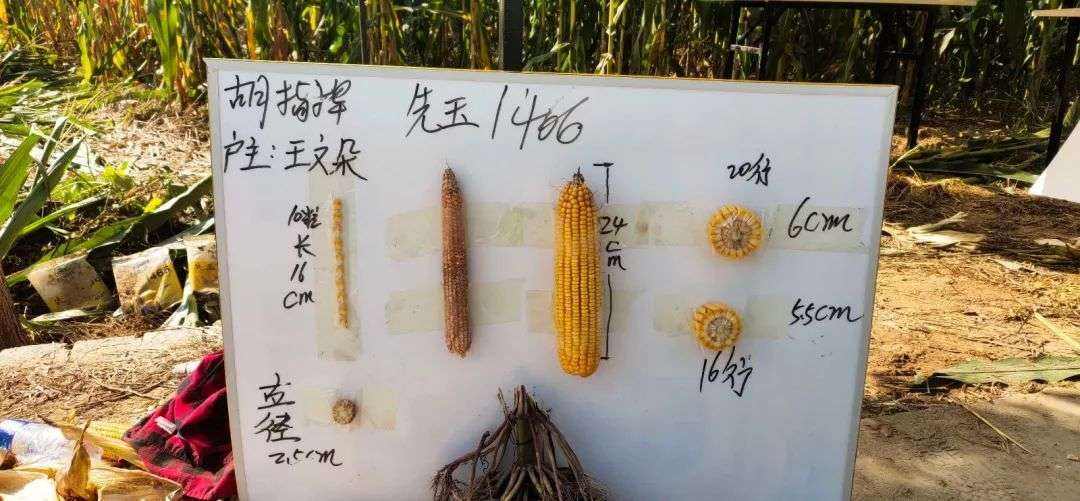 胡指挥
先玉1466
户主:王文朵
10粒
长
16
cm
24
cm
20行
6cm
5.5cm
16行
直
径
2.5cm